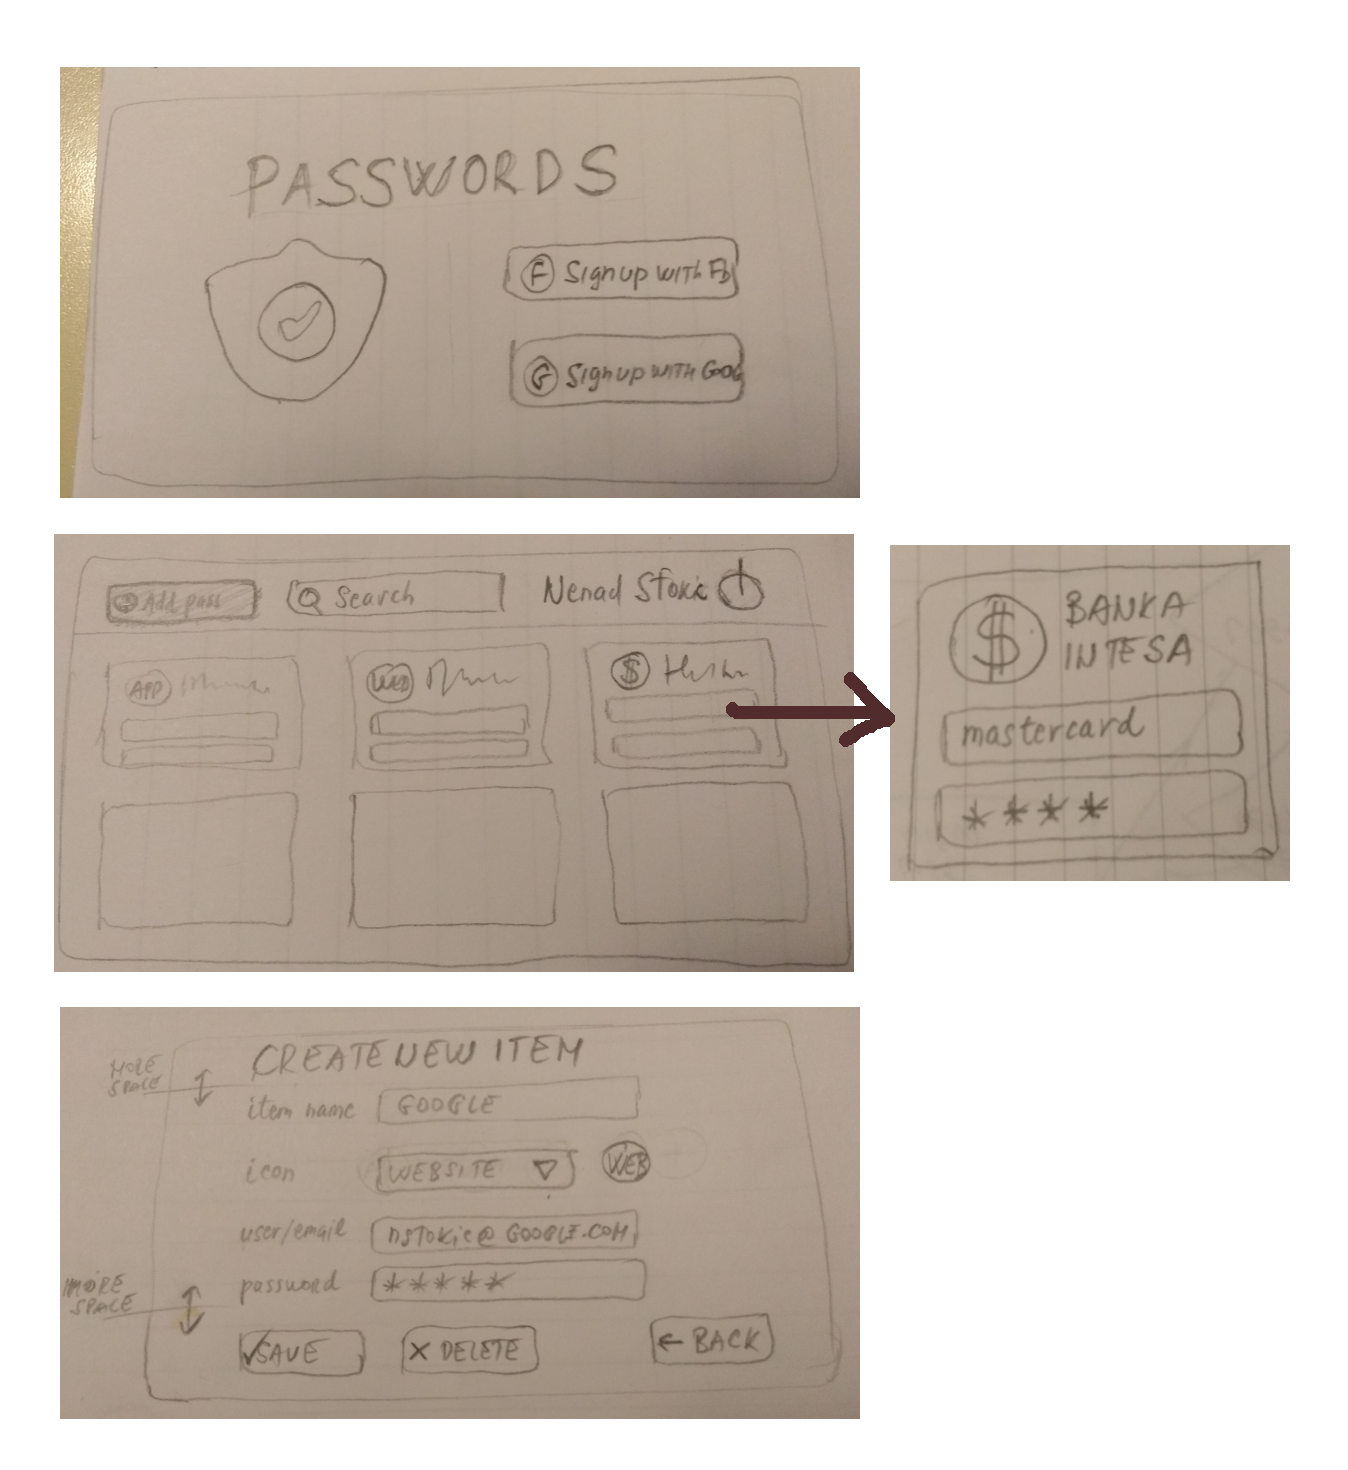 PASSWORDS
F Sign up with Fb
G Sign up with Goog
+ Add pass
Search
Nenad Stokic
APP
WEB
$
$ BANKA
INTESA
mastercard
****
CREATE NEW ITEM
MORE
SPACE
item name GOOGLE
icon WEBSITE WEB
user/email nstokic@GOOGLE.COM
MORE
SPACE
password *****
✓SAVE
X DELETE
← BACK